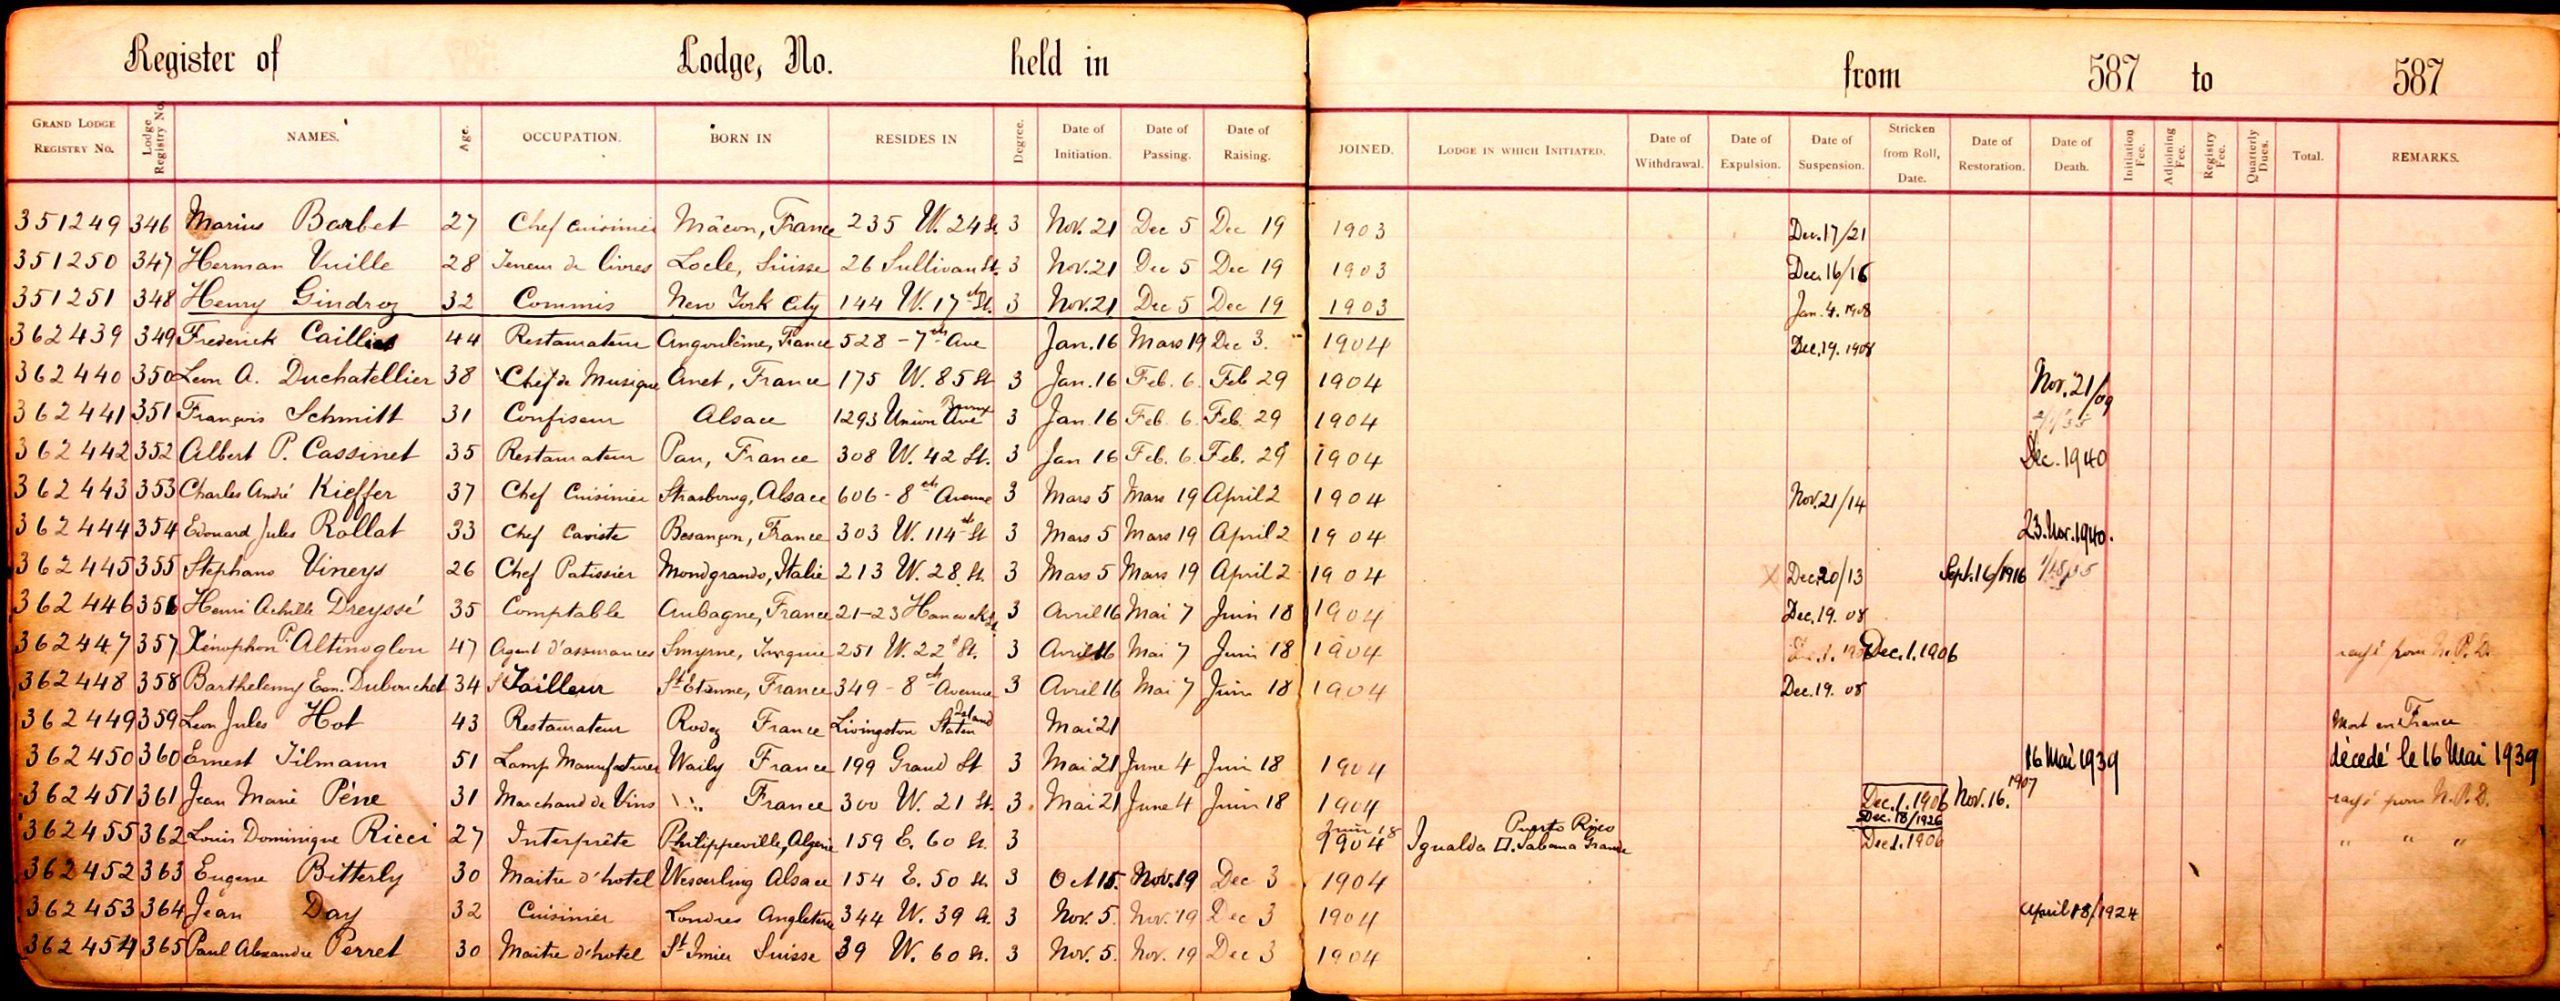 Register of Lodge, No. held in from 587 to 587
GRAND LODGE REGISTRY NO. Lodge Registry No. NAMES. Age. OCCUPATION. BORN IN RESIDES IN Degree. Date of Initiation. Date of Passing. Date of Raising. JOINED. LODGE IN WHICH INITIATED. Date of Withdrawal. Date of Expulsion. Date of Suspension. Stricken from Roll, Date. Date of Restoration. Date of Death. Initiation Fee. Adjoining Fee. Registry Fee. Quarterly Dues. Total. REMARKS.
351249 346 Marius Barbet 27 Chef cuisinier Mâcon, France 235 W. 24 St. 3 Nov. 21 Dec 5 Dec 19 1903 Dec. 17/21
351250 347 Herman Vuille 28 Teneur de livres Locle, Suisse 26 Sullivan St. 3 Nov. 21 Dec 5 Dec 19 1903 Dec. 16/16
351251 348 Henry Gindroz 32 Commis New York City 144 W. 17th St. 3 Nov. 21 Dec 5 Dec 19 1903 Jan. 4. 1908
362439 349 Frederick Caillies 44 Restaurateur Angoulême, France 528 - 7th Ave Jan. 16 Mars 19 Dec 3. 1904 Dec. 19. 1908
362440 350 Leon A. Duchatellier 38 Chef de Musique Anet, France 175 W. 85 St 3 Jan. 16 Feb. 6. Feb 29 1904 Nov. 21/09
362441 351 François Schmitt 31 Confiseur Alsace 1293 Union Ave Bronx 3 Jan. 16 Feb. 6. Feb. 29 1904
362442 352 Albert P. Cassinet 35 Restaurateur Pau, France 308 W. 42 St. 3 Jan 16 Feb. 6. Feb. 29 1904 Dec. 1940
362443 353 Charles André Kieffer 37 Chef Cuisinier Strasbourg, Alsace 606 - 8th Avenue 3 Mars 5 Mars 19 April 2 1904 Nov. 21/14
362444 354 Edouard Jules Rollat 33 Chef Caviste Besançon, France 303 W. 114th St 3 Mars 5 Mars 19 April 2 1904 23. Nov. 1940.
362445 355 Stephano Vineys 26 Chef Patissier Mondgrando, Italie 213 W. 28. St. 3 Mars 5 Mars 19 April 2 1904 X Dec. 20/13 Sept. 16/1916
362446 356 Henri Achille Dreyssé 35 Comptable Aubagne, France 21-23 Hancock St 3 Avril 16 Mai 7 Juin 18 1904 Dec. 19. 08
362447 357 Xénophon P. Altinoglou 47 Agent d'assurances Smyrne, Turquie 251 W. 22d St. 3 Avril 16 Mai 7 Juin 18 1904 Dec. 1. 1906 rayé pour N. P. D.
362448 358 Barthelemy Esn. Dubouchet 34 Tailleur St Etienne, France 349 - 8th Avenue 3 Avril 16 Mai 7 Juin 18 1904 Dec. 19. 08
362449 359 Leon Jules Hot 43 Restaurateur Rodez France Livingston Staten Island Mai 21 Mort en France
362450 360 Ernest Tilmann 51 Lamp Manufacturer Waily France 199 Grand St 3 Mai 21 June 4 Juin 18 1904 16 Mai 1939 décedé le 16 Mai 1939
362451 361 Jean Marie Péne 31 Marchand de Vins France 300 W. 21 St. 3 Mai 21 June 4 Juin 18 1904 Dec. 1. 1906 Dec. 18/1926 Nov. 16. 1907 rayé pour N. P. D.
362455 362 Louis Dominique Ricci 27 Interprète Philippeville, Algerie 159 E. 60 St. 3 Juin 18 1904 Igualda □. Sabana Grande Puerto Rico Dec 1. 1906 " " "
362452 363 Eugene Bitterly 30 Maitre d'hotel Wesserling Alsace 154 E. 50 St. 3 Oct 15. Nov. 19 Dec 3 1904
362453 364 Jean Day 32 Cuisinier Londres Angleterre 344 W. 39 St. 3 Nov. 5. Nov. 19 Dec 3 1904 April 18/1924
362454 365 Paul Alexandre Perret 30 Maitre d'hotel St Imier Suisse 39 W. 60 St. 3 Nov. 5. Nov. 19 Dec 3 1904